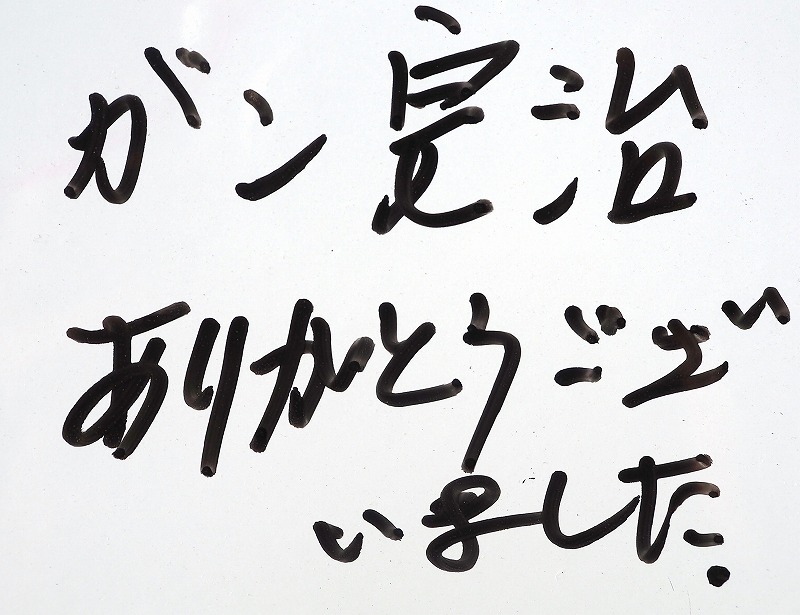 ガン完治
ありがとうござい
いました.